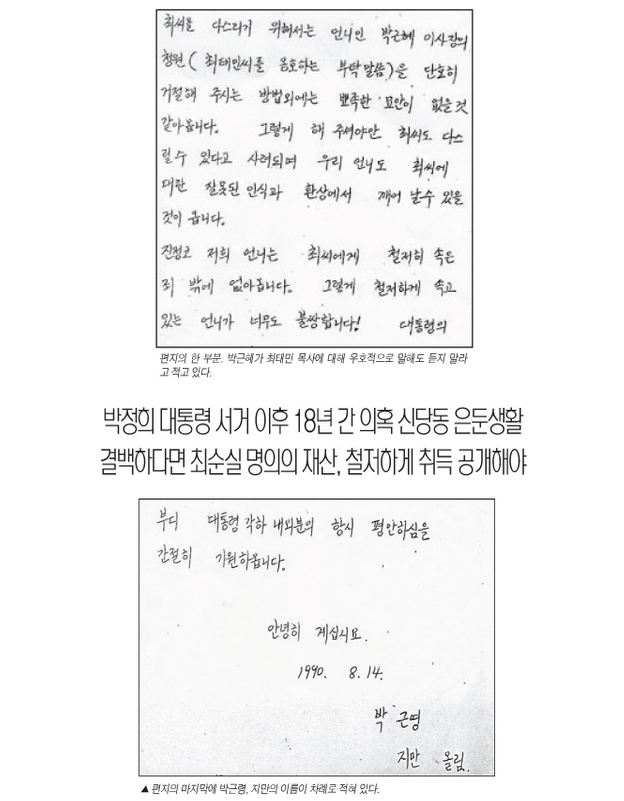 최씨를 다스리기 위해서는 언니인 박근혜 이사장의
청원(최태민씨를 옹호하는 부탁말씀)을 단호히
거절해 주시는 방법외에는 뾰족한 묘안이 없을것
같아옵니다. 그렇게 해 주셔야만 최씨도 다스
릴수 있다고 사려되며 우리 언니도 최씨에
대한 잘못된 인식과 환상에서 깨어 날수 있을
것이 옵니다.
진정코 저희 언니는 최씨에게 철저히 속은
죄 밖에 없아옵니다. 그렇게 철저하게 속고
있는 언니가 너무도 불쌍합니다! 대통령의
편지의 한 부분. 박근혜가 최태민 목사에 대해 우호적으로 말해도 듣지 말라
고 적고 있다.
박정희 대통령 서거 이후 18년 간 의혹 신당동 은둔생활
결백하다면 최순실 명의의 재산, 철저하게 취득 공개해야
부디 대통령 각하 내외분의 항시 평안하심을
간절히 기원하옵니다.
안녕히 계십시요.
1990. 8. 14.
박 근영
지만 올림.
▲ 편지의 마지막에 박근령, 지만의 이름이 차례로 적혀 있다.